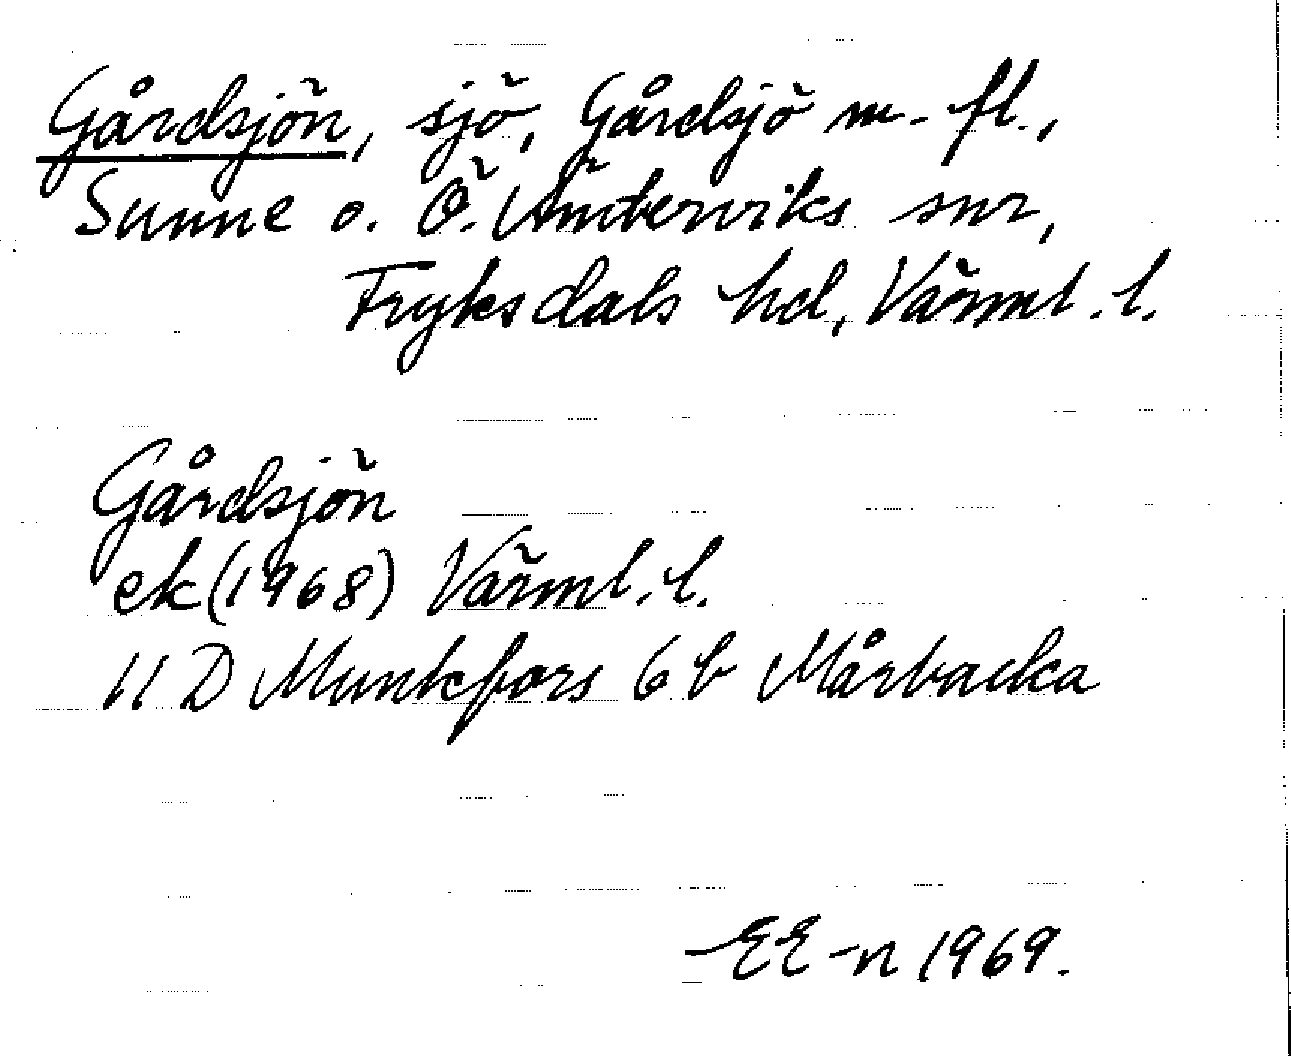 Gårdsjön, sjö, Gårdsjö m. fl.,
Sunne o. Ö. Ämterviks snr,
Fryksdals hd, Värml. l.
Gårdsjön
ek (1968) Värml. l.
11 D Munkfors 6 b Mårbacka
EE-n 1969.